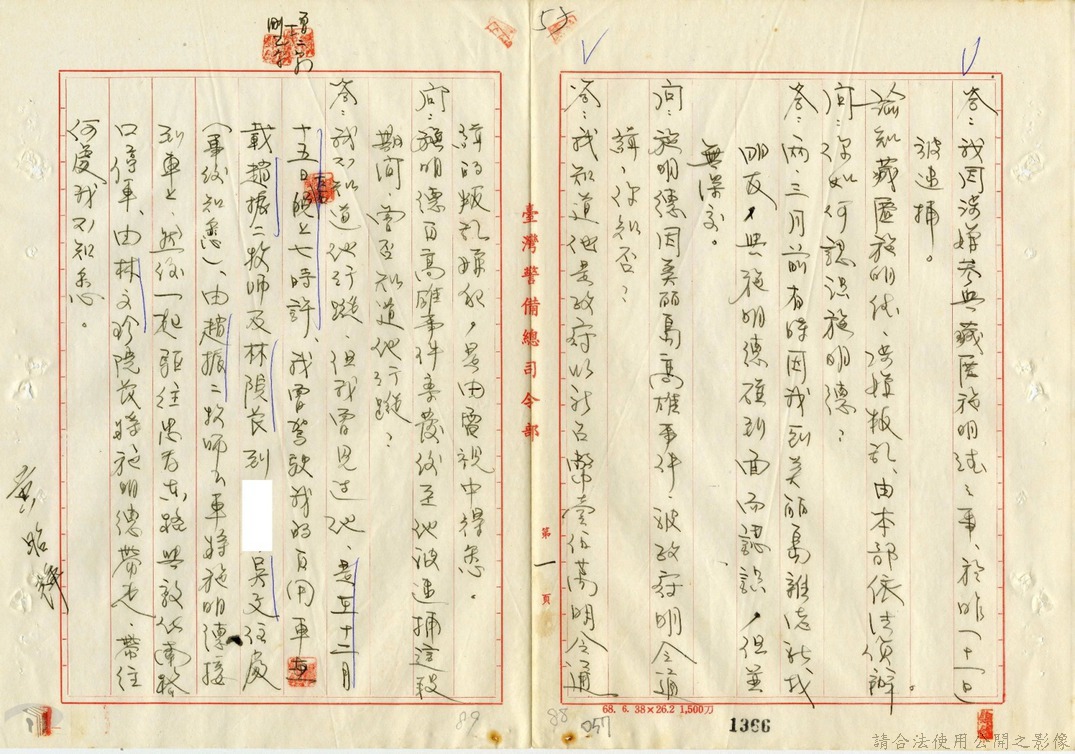 答:我因涉嫌參與藏匿施明德之事、於昨(十一)日
被逮捕。
諭知藏匿施明德、涉嫌叛乱、由本部依法偵辦。
問:你如何認識施明德?
答:兩、三月前有時因我到美丽島雜志社找
朋友,與施明德碰到面而認識,但並
無深交。
問:施明德因美丽島高雄事件,被政府明令通
緝,你知否?
答:我知道他是政府以新台幣壹佰萬明令通
緝的叛乱嫌犯,是由電視中得悉。
問:施明德自高雄事件事發後至他被逮捕這段
期间,曾否知道他行蹤?
答:我不知道他行蹤、但我曾見过他、是在十二月
十五日晚上七時許、我曾駕駛我的自用車
載趙振二牧師及林院長到 吳文住處
(事後知悉)、由趙振二牧師下車將施明德接
到車上、然後一起駆往忠孝東路與敦化南路
口停車、由林文珍院長將施明德帶走、帶往
何處我不知悉。
臺灣警備總司令部
第一頁
68. 6. 38×26.2 1,500刀
1366
88
057
89
54
請合法使用公開之影像